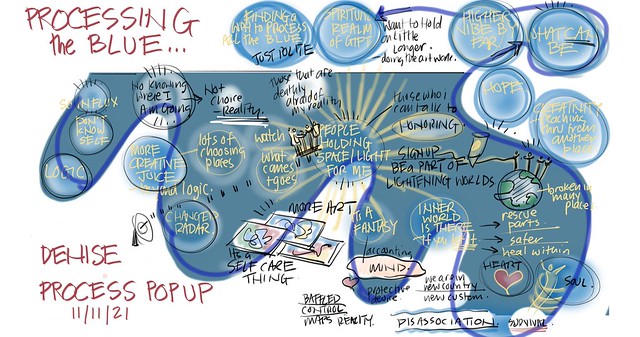 PROCESSING
the BLUE...
FINDING a
WAY to PROCESS
ALL the BLUE
JUST TO WRITE
SPIRITUAL
REALM
OF GIFT
want to Hold
on little
longer.
doing the art work.
HIGHER
VIBE BY
FAR
WHAT CAN
BE
HOPE
teaching
thru from
another
place
SO IN FLUX
DON'T
KNOW
SELF
LOGIC
No knowing
where I
Am going...
Not
choice
Reality.
those that are
deathly
afraid of
my reality
lots of
choosing
plates
watch
what
comes
+ goes
PEOPLE
HOLDING
SPACE/LIGHT
FOR ME
those who I
can talk to
HONORING.
SIGN UP
BE a PART OF
LIGHTENING WORLDS
MORE
CREATIVE
JUICE
beyond logic.
CHANGED
RADAR
MORE ART
It's a
SELF CARE
THING
IT'S A
FANTASY
INNER
WORLD IS
THERE
accounting
MIND.
protective
device.
we are in
new country
new custom.
BAFFLED
CONTROL
MAPS REALITY.
DISASSOCIATION.
SURVIVAL.
broken in
many
places.
rescue
parts.
safer
heal within
HEART
SOUL.
DENISE
PROCESS POP UP
11/11/21